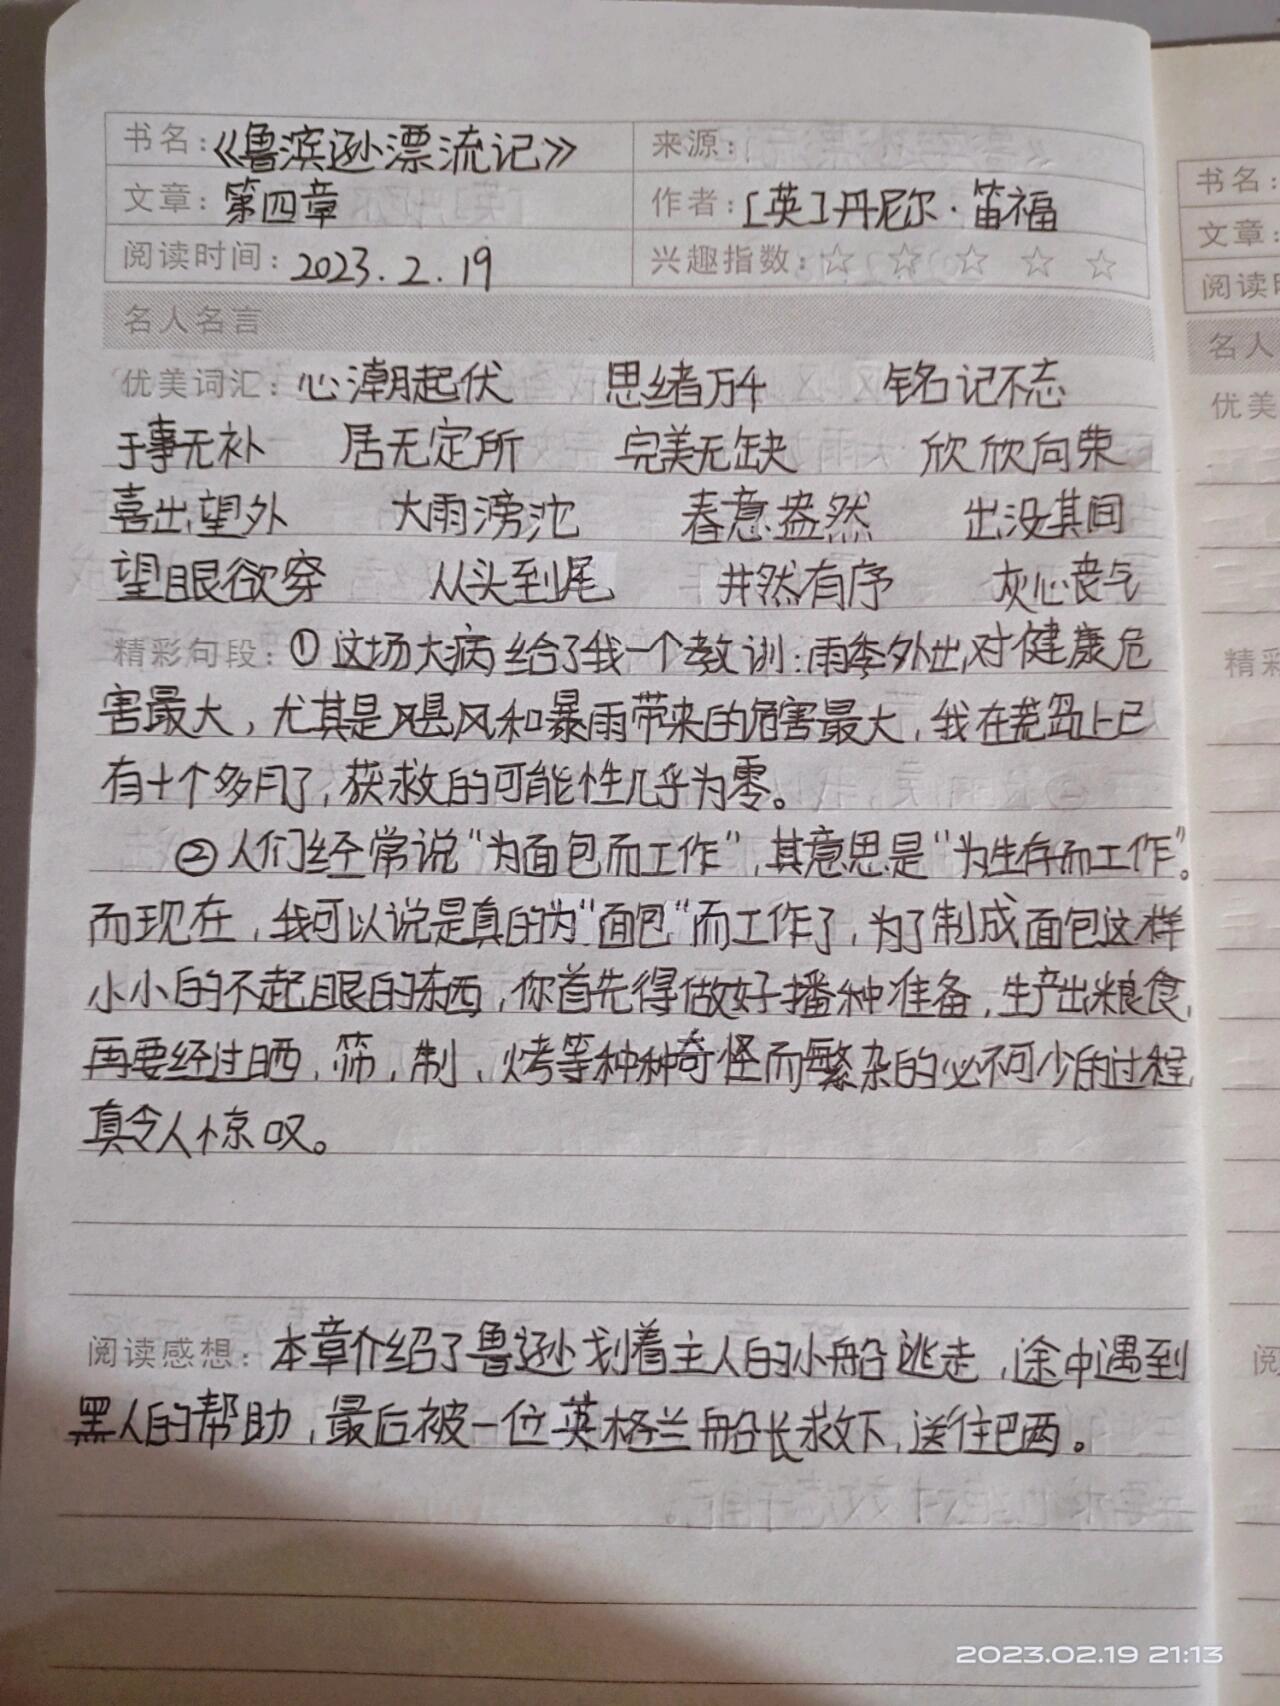 书名:《鲁滨逊漂流记》 来源:
文章: 第四章 作者: [英]丹尼尔·笛福
阅读时间: 2023.2.19 兴趣指数:☆ ☆ ☆ ☆ ☆
名人名言
优美词汇: 心潮起伏 思绪万千 铭记不忘
于事无补 居无定所 完美无缺 欣欣向荣
喜出望外 大雨滂沱 春意盎然 出没其间
望眼欲穿 从头到尾 井然有序 灰心丧气
精彩句段: ①这场大病给了我一个教训:雨季外出,对健康危
害最大,尤其是飓风和暴雨带来的危害最大,我在荒岛上已
有十个多月了,获救的可能性几乎为零。
②人们经常说“为面包而工作”,其意思是“为生存而工作”。
而现在,我可以说是真的为“面包“而工作了,为了制成面包这样
小小的不起眼的东西,你首先得做好播种准备,生产出粮食,
再要经过晒,筛,制,烤等种种奇怪而繁杂的必不可少的过程,
真令人惊叹。
阅读感想: 本章介绍了鲁逊划着主人的小船逃走,途中遇到
黑人的帮助,最后被一位英格兰船长救下,送往巴西。
书名:
文章:
阅读时
名人
优美
精彩
阅
2023.02.19 21:13